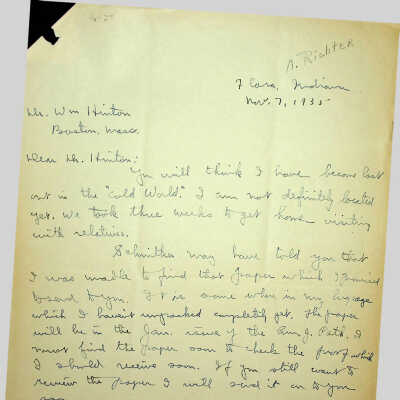 A. Richter
Flora, Indiana
Nov. 7, 1935
Dr. Wm Hinton
Boston, Mass.
Dear Dr. Hinton:
You will think I have become lost
out in the "Cold World." I am not definitely located
yet. We took three weeks to get home visiting
with relatives.
may have told you that
I was unable to find that paper which I promised
to send to you. It is some where in my luggage
which I haven't unpacked completely yet. The paper
will be in the Jan. issue of the Am. J. Path. I
must find the paper soon to check the proof which
I should receive soon. If you still want to
review the paper I will send it on to you